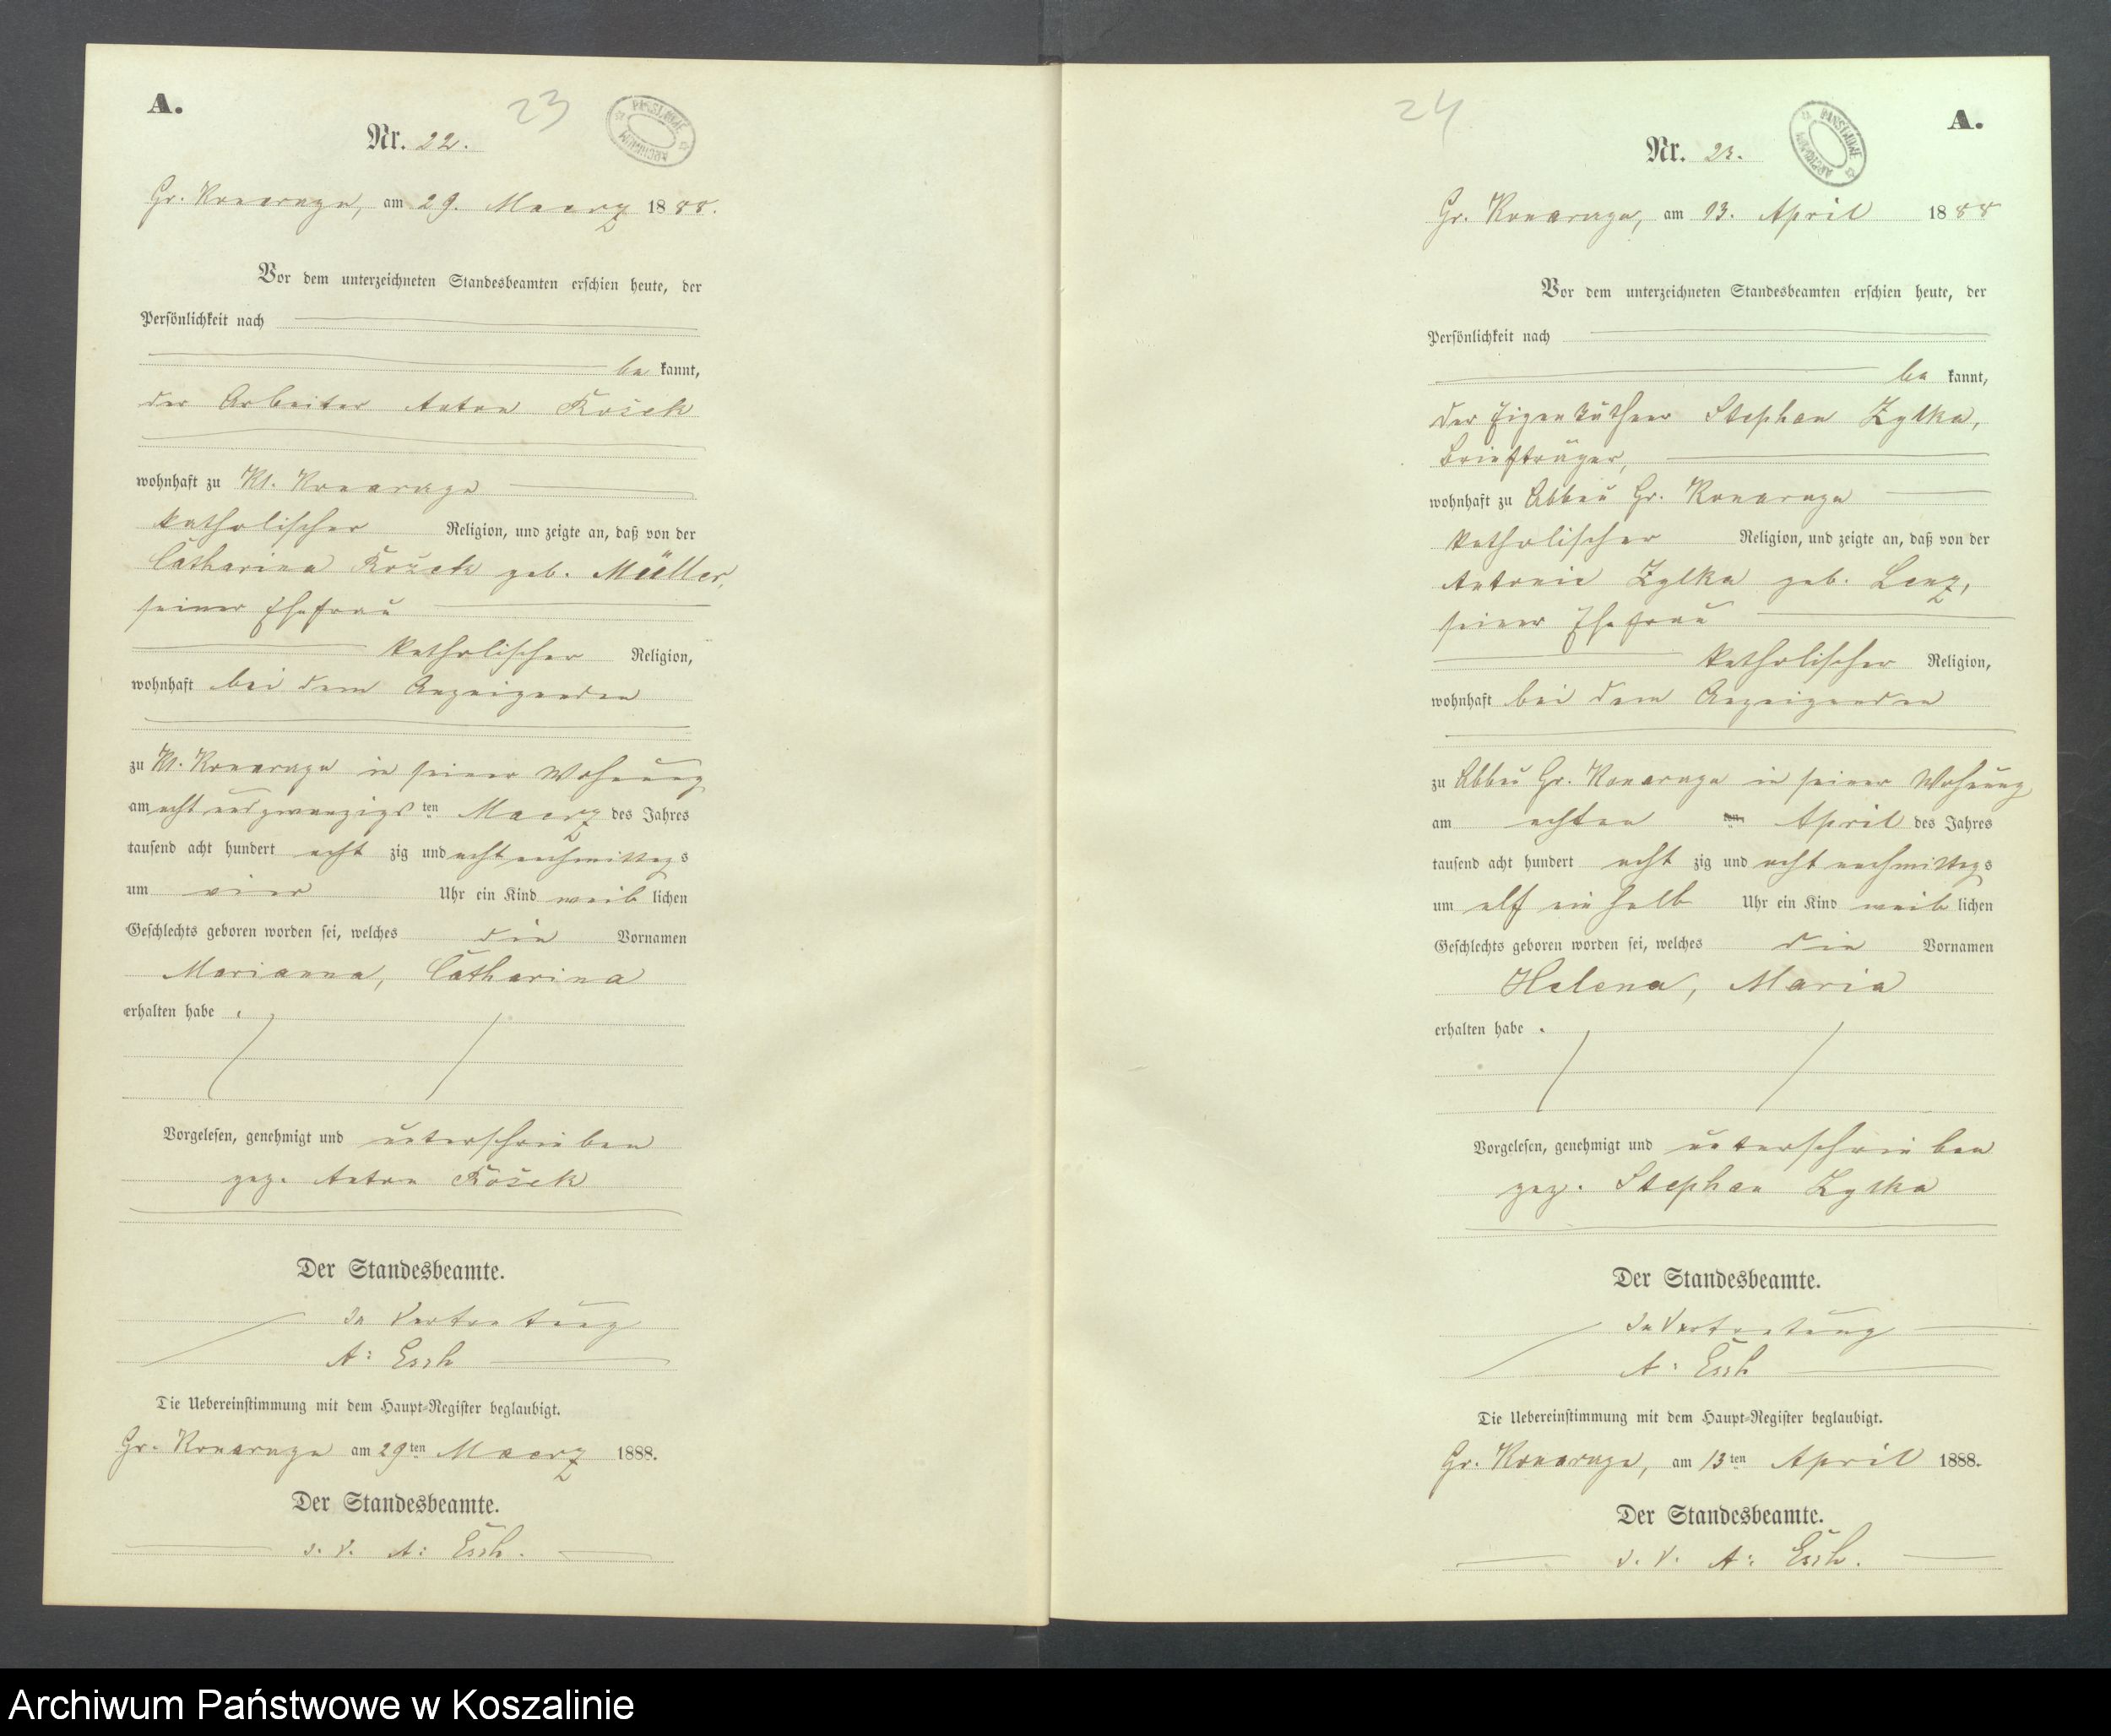 A.
23
PAŃSTWOWE ARCHIWUM
Nr. 22.
Gr. Konarzyn, am 29. Maerz 1888.
Vor dem unterzeichneten Standesbeamten erschien heute, der
Persönlichkeit nach
be kannt,
der Arbeiter Anton Kožek
wohnhaft zu Kl. Konarzyn
katholischer Religion, und zeigte an, daß von der
Catharina Kožek geb. Müller,
seiner Ehefrau
katholischer Religion,
wohnhaft bei dem Anzeigenden
zu Kl. Konarzyn in seiner Wohnung
am acht und zwanzigsten Maerz des Jahres
tausend acht hundert acht zig und acht nachmittags
um vier Uhr ein Kind weib lichen
Geschlechts geboren worden sei, welches die Vornamen
Marianna, Catharina
erhalten habe.
Vorgelesen, genehmigt und unterschrieben
gez. Anton Kožek
Der Standesbeamte.
In Vertretung
A:
Die Uebereinstimmung mit dem Haupt-Register beglaubigt.
Gr. Konarzyn am 29ten Maerz 1888.
Der Standesbeamte.
I. V. A:
24
PAŃSTWOWE ARCHIWUM
A.
Nr. 23.
Gr. Konarzyn, am 13. April 1888
Vor dem unterzeichneten Standesbeamten erschien heute, der
Persönlichkeit nach
be kannt,
der Eigenkäthner Stephan Zylka,
Briefträger,
wohnhaft zu Abbau Gr. Konarzyn
katholischer Religion, und zeigte an, daß von der
Antonie Zylka geb. Lenz,
seiner Ehefrau
katholischer Religion,
wohnhaft bei dem Anzeigenden
zu Abbau Gr. Konarzyn in seiner Wohnung
am achten ten April des Jahres
tausend acht hundert acht zig und acht nachmittags
um elf ein halb Uhr ein Kind weib lichen
Geschlechts geboren worden sei, welches die Vornamen
Helena, Maria
erhalten habe.
Vorgelesen, genehmigt und unterschrieben
gez. Stephan Zylka
Der Standesbeamte.
In Vertretung
A:
Die Uebereinstimmung mit dem Haupt-Register beglaubigt.
Gr. Konarzyn, am 13ten April 1888.
Der Standesbeamte.
I. V. A:
Archiwum Państwowe w Koszalinie